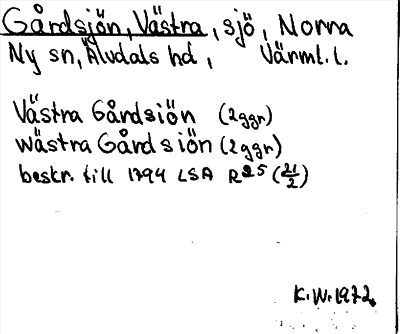 Gårdsjön, Västra, sjö, Norra
Ny sn, Älvdals hd, Värml. l.
Västra Gårdsiön (2ggr)
Wästra Gårdsiön (2ggr)
beskr. till 1794 LSA R25 (21/2)
K.W. 1972.